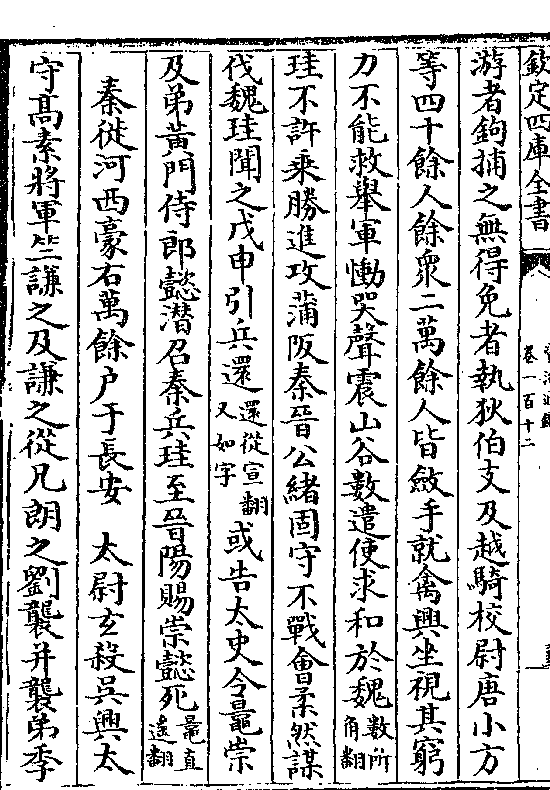 欽定四庫全書
卷一百十二
游者鉤捕之無得免者執狄伯支及越騎校尉唐小方
等四十餘人餘衆二萬餘人皆斂手就禽興坐視其窮
力不能救舉軍慟哭聲震山谷數遣使求和於魏數所角翻
珪不許乗勝進攻蒲阪秦晉公緒固守不戰會柔然謀
伐魏珪聞之戊申引兵還還從宣翻又如字或告太史令鼂崇
及弟黃門侍郎懿潛召秦兵珪至晉陽賜崇懿死鼂直遥翻
秦徙河西豪右萬餘户于長安　太尉玄殺吳興太
守高素將軍竺謙之及謙之從兄朗之劉襲并襲弟季